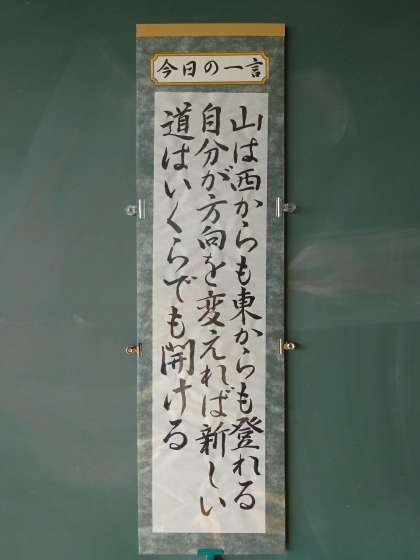 今日の一言
山は西からも東からも登れる
自分が方向を変えれば新しい
道はいくらでも開ける